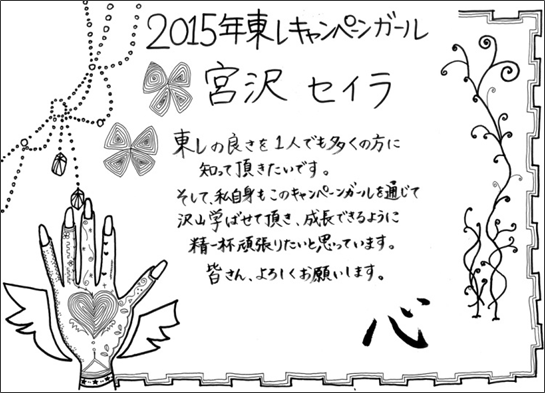 2015年東レキャンペーンガール
宮沢 セイラ
東レの良さを1人でも多くの方に
知って頂きたいです。
そして、私自身もこのキャンペーンガールを通じて
沢山学ばせて頂き、成長できるように
精一杯頑張りたいと思っています。
皆さん、よろしくお願いします。
心